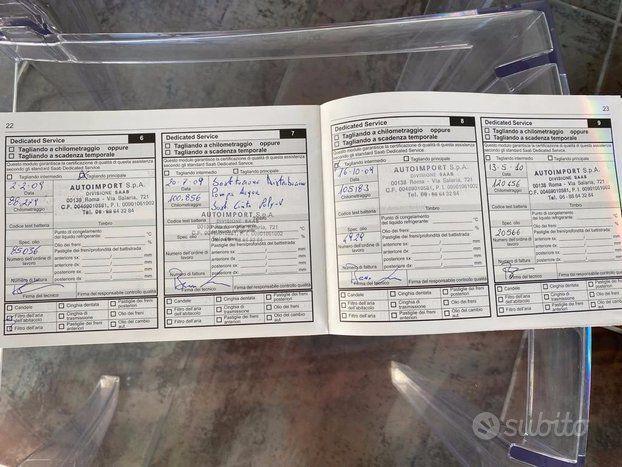 22
Dedicated Service 6
Tagliando a chilometraggio oppure
Tagliando a scadenza temporale
Questo modulo garantisce la certificazione di qualità di questa assistenza
secondo gli standard Saab Dedicated Service.
Tagliando intermedio Tagliando principale
2.2.09
Data
Chilometraggio
AUTOIMPORT S.p.A.
DIVISIONE SAAB
00138 Roma - Via Salaria, 721
Tel. 06 - 88 64 32 84
Codice test batteria
Timbro
Punto di congelamento
del liquido refrigerante: °C
Spec. olio
Pastiglie dei freni/profondità del battistrada:
85056
Numero dell'ordine di
lavoro
anteriore sx: / mm
anteriore dx: / mm
posteriore sx: / mm
posteriore dx: / mm
Numero di fattura
Firma del tecnico
Firma del responsabile controllo qualità
Candele
Cinghia dentata
Pastiglie dei freni
posteriori
Filtro dell'aria
dell'abitacolo
Cinghia di
trasmissione
Olio dei freni
Filtro dell'aria
Pastiglie dei freni
anteriori
Olio del cambio
aut.
Dedicated Service 7
Tagliando a chilometraggio oppure
Tagliando a scadenza temporale
Questo modulo garantisce la certificazione di qualità di questa assistenza
secondo gli standard Saab Dedicated Service.
Tagliando intermedio Tagliando principale
20.7.09
Data
Pompa Acqua
100.856
Chilometraggio
AUTOIMPORT S.p.A.
DIVISIONE SAAB
00138 Roma - Via Salaria, 721
Codice test batteria
Punto di congelamento
del liquido refrigerante: °C
Spec. olio
Pastiglie dei freni/profondità del battistrada:
Numero dell'ordine di
lavoro
anteriore sx: / mm
anteriore dx: / mm
posteriore sx: / mm
posteriore dx: / mm
Numero di fattura
Firma del tecnico
Firma del responsabile controllo qualità
Candele
Cinghia dentata
Pastiglie dei freni
posteriori
Filtro dell'aria
dell'abitacolo
Cinghia di
trasmissione
Olio dei freni
Filtro dell'aria
Pastiglie dei freni
anteriori
Olio del cambio
aut.
23
Dedicated Service 8
Tagliando a chilometraggio oppure
Tagliando a scadenza temporale
Questo modulo garantisce la certificazione di qualità di questa assistenza
secondo gli standard Saab Dedicated Service.
Tagliando intermedio Tagliando principale
16-10-09
Data
105183
Chilometraggio
AUTOIMPORT S.p.A.
DIVISIONE SAAB
00138 Roma - Via Salaria, 721
Tel. 06 - 88 64 32 84
Codice test batteria
Timbro
Punto di congelamento
del liquido refrigerante: °C
Spec. olio
Pastiglie dei freni/profondità del battistrada:
Numero dell'ordine di
lavoro
anteriore sx: / mm
anteriore dx: / mm
posteriore sx: / mm
posteriore dx: / mm
Numero di fattura
Firma del tecnico
Firma del responsabile controllo qualità
Candele
Cinghia dentata
Pastiglie dei freni
posteriori
Filtro dell'aria
dell'abitacolo
Cinghia di
trasmissione
Olio dei freni
Filtro dell'aria
Pastiglie dei freni
anteriori
Olio del cambio
aut.
Dedicated Service 9
Tagliando a chilometraggio oppure
Tagliando a scadenza temporale
Questo modulo garantisce la certificazione di qualità di questa assistenza
secondo gli standard Saab Dedicated Service.
Tagliando intermedio Tagliando principale
13-5-10
Data
120456
Chilometraggio
AUTOIMPORT S.p.A.
DIVISIONE SAAB
00138 Roma - Via Salaria, 721
Tel. 06 - 88 64 32 84
Codice test batteria
Timbro
Punto di congelamento
del liquido refrigerante: °C
Spec. olio
Pastiglie dei freni/profondità del battistrada:
20566
Numero dell'ordine di
lavoro
anteriore sx: / mm
anteriore dx: / mm
posteriore sx: / mm
posteriore dx: / mm
Numero di fattura
Firma del tecnico
Firma del responsabile controllo qualità
Candele
Cinghia dentata
Pastiglie dei freni
posteriori
Filtro dell'aria
dell'abitacolo
Cinghia di
trasmissione
Olio dei freni
Filtro dell'aria
Pastiglie dei freni
anteriori
Olio del cambio
aut.
subito